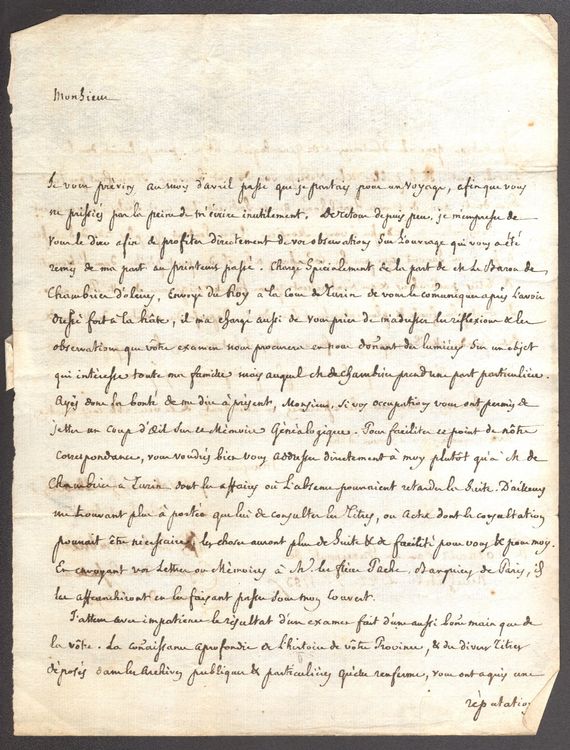 Monsieur
Je vous prévins au mois d'avril passé que je partais pour un voyage, afin que vous
ne prissiés pas la peine de m'écrire inutilement. De retour depuis peu, je m'empresse de
vous le dire afin de profiter directement de vos observations sur l'ouvrage qui vous a été
remis de ma part au printems passé. Chargé spécialement de la part de M. Le Baron de
Chambrier d'oleires, Envoyé du Roy à la Cour de Turin de vous le communiquer après l'avoir
dressé fort à la hâte, il m'a chargé aussi de vous prier de m'adresser les réflexions & les
observations que vôtre examen nous procurera en nous donant des lumières sur un objet
qui interesse toute ma famille mais auquel M. de Chambrier prend une part particulière.
Ayés donc la bonté de me dire à présent, Monsieur, si vos occupations vous ont permis de
jetter un coup d'œil sur ce Mémoire Généalogique. Pour faciliter ce point de nôtre
correspondance, vous voudrés bien vous addresser directement à moy plutôt qu'à M. de
Chambrier à Turin dont les affaires ou l'absence pourraient retarder la suite. D'ailleurs
me trouvant plus à portée que lui de consulter les Titres, ou Actes dont la consultation
pourrait être nécessaire, les choses auront plus de suite & de facilité pour vous & pour moy.
En envoyant vos Lettres ou Mémoires à M. les frères Pache, Banquiers de Paris, ils
les affranchiront en les faisant passer sous mon couvert.
J'attens avec impatience le résultat d'un examen fait d'une aussi bone main que de
la vôtre. La conaissance aprofondie de l'histoire de vôtre Province, & des divers Titres
déposés dans les Archives publiques & particulières qu'elle renferme, vous ont aquis une
réputation